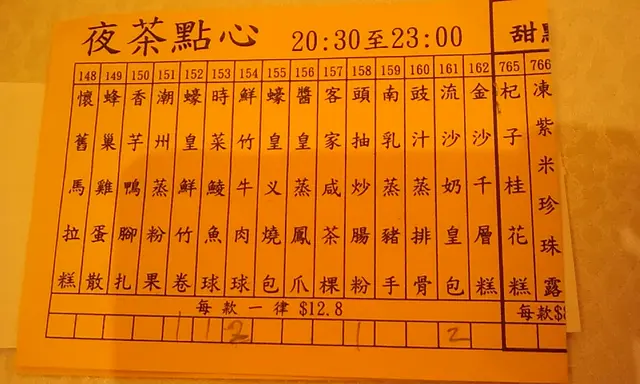 夜茶點心 20:30至23:00
甜
148 懷舊馬拉糕
149 蜂巢雞蛋散
150 香芋鴨腳扎
151 潮州蒸粉果
152 蠔皇鮮竹卷
153 時菜鯪魚球
154 鮮竹牛肉球
155 蠔皇义燒包
156 醬皇蒸鳳爪
157 客家咸茶粿
158 頭抽炒腸粉
159 南乳蒸豬手
160 豉汁蒸排骨
161 流沙奶皇包
162 金沙千層糕
765 杞子桂花糕
766 凍紫米珍珠露
每款一律 $12.8
每款$
1 1 2 1 2